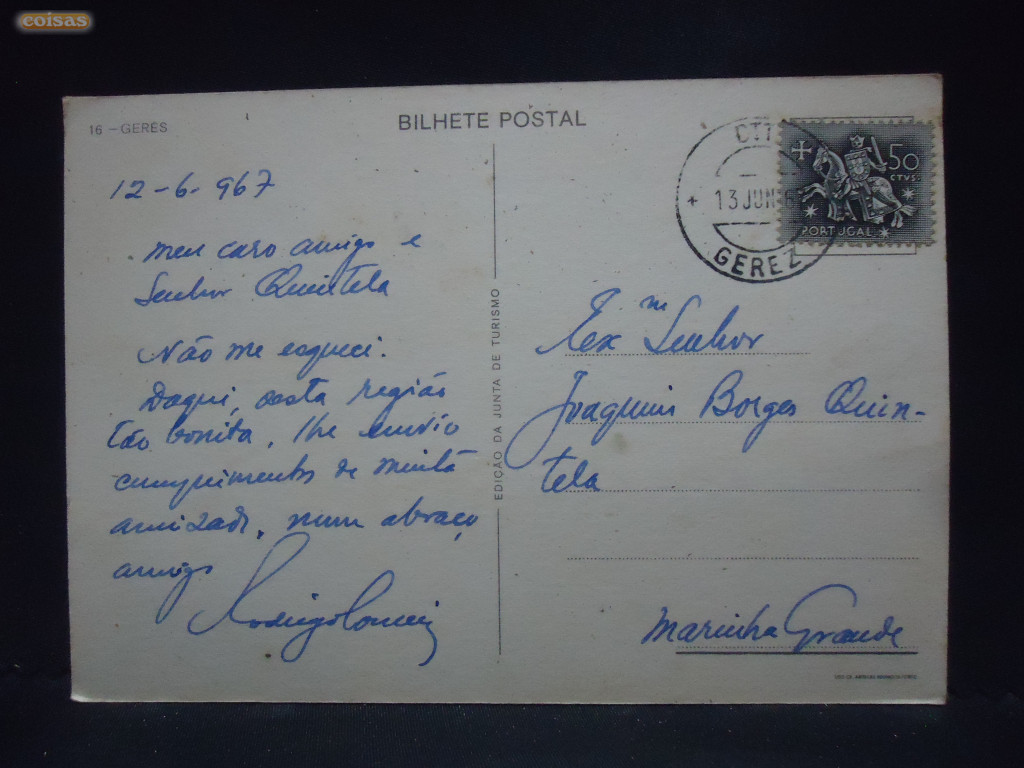 coisas
16 - GERÊS
BILHETE POSTAL
CTT
13 JUN 6
GEREZ
50
CTVS.
PORTUGAL
12-6-967
Meu caro amigo e
Senhor Quintela
Não me esqueci.
Daqui, desta região
tão bonita, lhe envio
cumprimentos de muita
amizade, num abraço
amigo
Rodrigo
EDIÇÃO DA JUNTA DE TURISMO
Ex.m Senhor
Joaquim Borges Quin-
tela
Marinha Grande